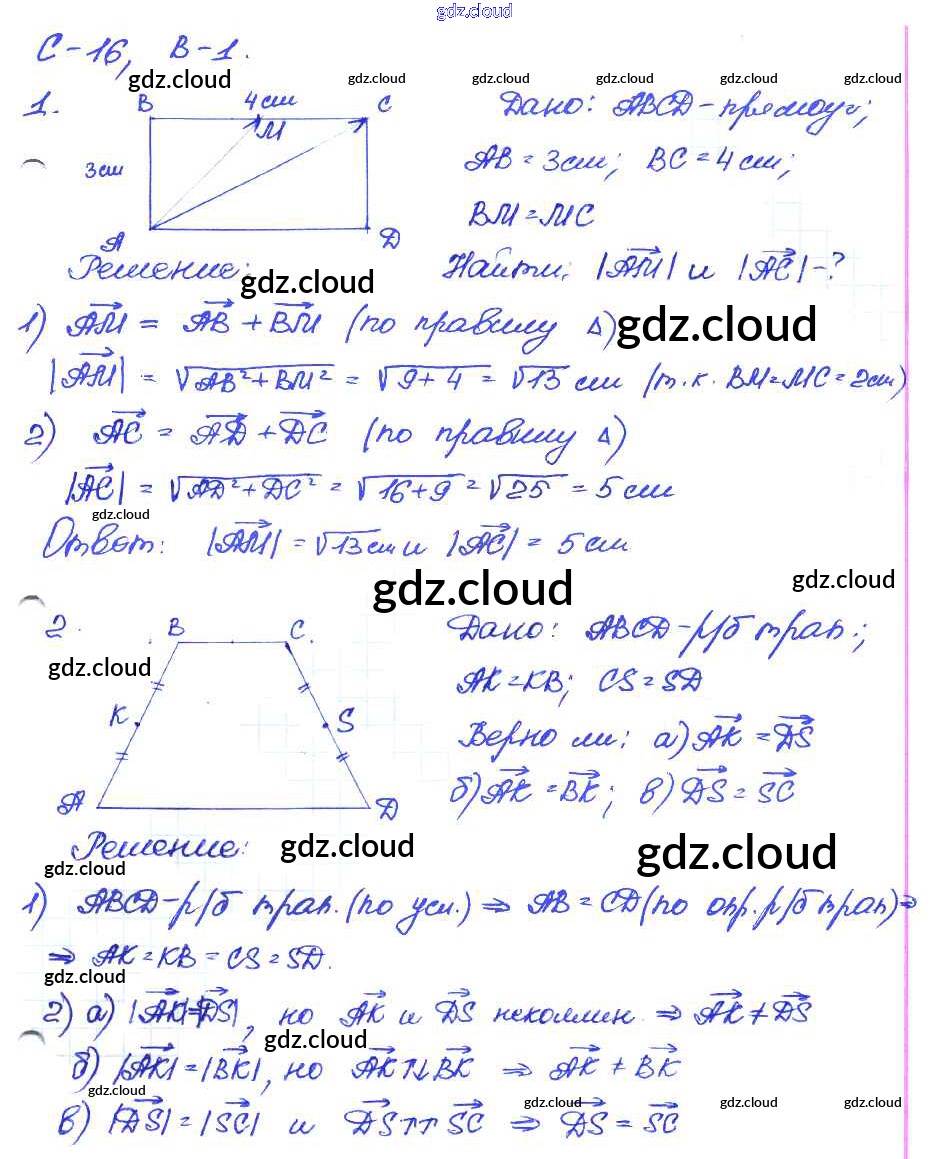 gdz.cloud
С-16, В-1.
gdz.cloud gdz.cloud gdz.cloud gdz.cloud gdz.cloud gdz.cloud
1. B 4см C Дано: ABCD - прямоуг;
M
3см AB = 3см; BC = 4 см;
BM = MC
A D
Решение: gdz.cloud Найти: |AM| и |AC| - ?
1) AM = AB + BM (по правилу Δ) gdz.cloud
|AM| = √AB² + BM² = √9 + 4 = √13 см (т.к. BM = MC = 2см)
2) AC = AD + DC (по правилу Δ)
|AC| = √AD² + DC² = √16 + 9 = √25 = 5 см
gdz.cloud
Ответ: |AM| = √13 см и |AC| = 5 см
gdz.cloud gdz.cloud
2. B C. Дано: ABCD - р/б трап.;
gdz.cloud
AK = KB; CS = SD
K S
Верно ли: а) AK = DS
б) AK = BK; в) DS = SC
A D
Решение: gdz.cloud gdz.cloud
gdz.cloud
1) ABCD - р/б трап. (по усл.) ⇒ AB = CD (по опр. р/б трап) ⇒
⇒ AK = KB = CS = SD.
gdz.cloud
2) а) |AK| = |DS|, но AK и DS неколлин. ⇒ AK ≠ DS
gdz.cloud
б) |AK| = |BK|, но AK ↑↓ BK ⇒ AK ≠ BK
gdz.cloud gdz.cloud gdz.cloud gdz.cloud
в) |DS| = |SC| и DS ↑↑ SC ⇒ DS = SC